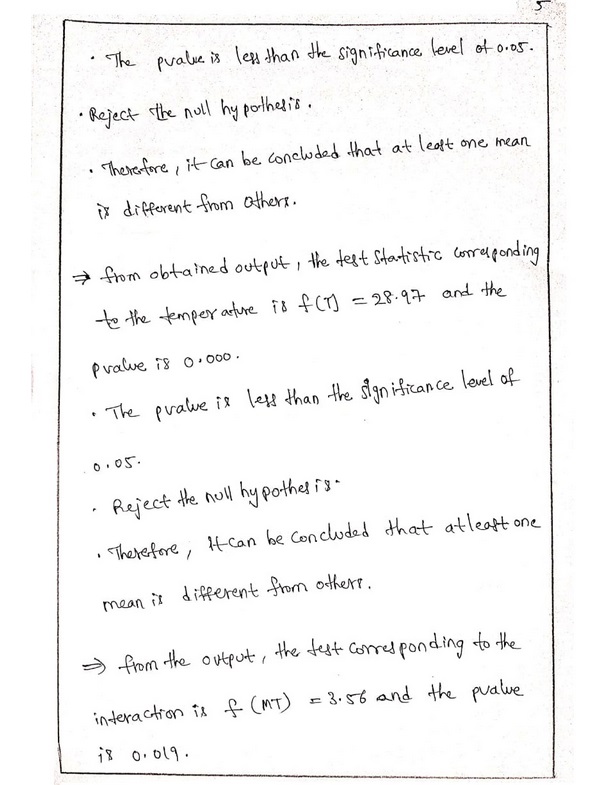 5
· The pvalue is less than the significance level of 0.05.
· Reject the null hypothesis.
· Therefore, it can be concluded that at least one mean
is different from others.
⇒ from obtained output, the test statistic corresponding
to the temperature is f(T) = 28.97 and the
pvalue is 0.000.
· The pvalue is less than the significance level of
0.05.
· Reject the null hypothesis.
· Therefore, It can be concluded that atleast one
mean is different from others.
⇒ from the output, the test corresponding to the
interaction is f (MT) = 3.56 and the pvalue
is 0.019.